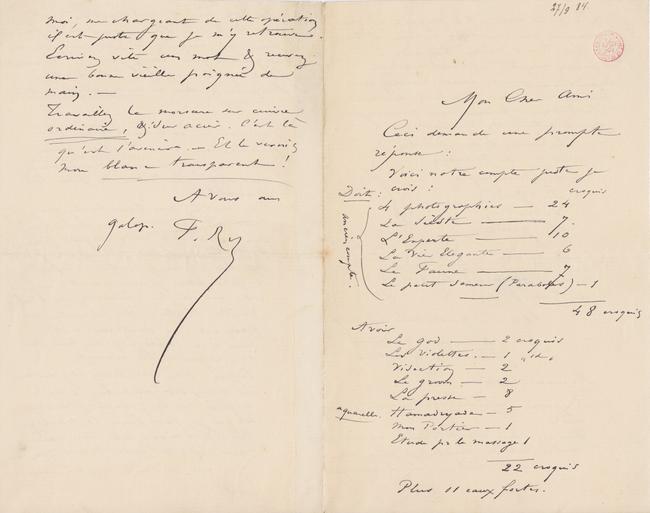 27/9 84.
Mon Cher Ami
Ceci demande une prompte
réponse :
Voici notre compte juste je
crois :
croquis
Doit :
ancien compte.
4 photographies — 24
La — 7.
L'Experte — 10
La Vie Elégante — 6
Le Faune — 7
Le petit Semeur (Paraboles) — 1
48 croquis
Avoir
Le — 2 croquis
Les Violettes. — 1 "id"
— 2
Le groom — 2
La presse — 8
aquarelle. Hamadryade — 5
Mon Portier — 1
Etude pr le massage 1
22 croquis
Plus 11 eaux fortes.
moi, me chargeant de cette opération
il est juste que je m'y retrouve.
Ecrivez vite un mot & recevez
une bonne vieille poignée de
main. —
Travaillez la morsure sur cuivre
ordinaire, & sur acier. C'est là
qu'est l'avenir. — Et le vernis
mou blanc transparent !
A vous
galop. F. R